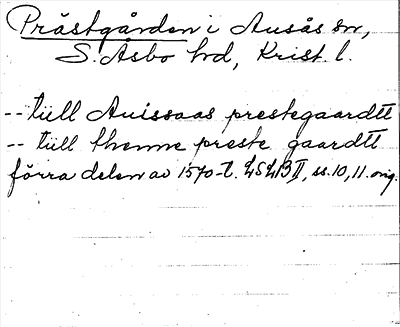 Prästgården i Ausås sn,
S. Åsbo hd, Krist. l.
-- tüll Auissaas prestegaardtt
-- tüll thenne preste gaardtt
förra delen av 1570-t. LSLB II, ss. 10, 11. orig.